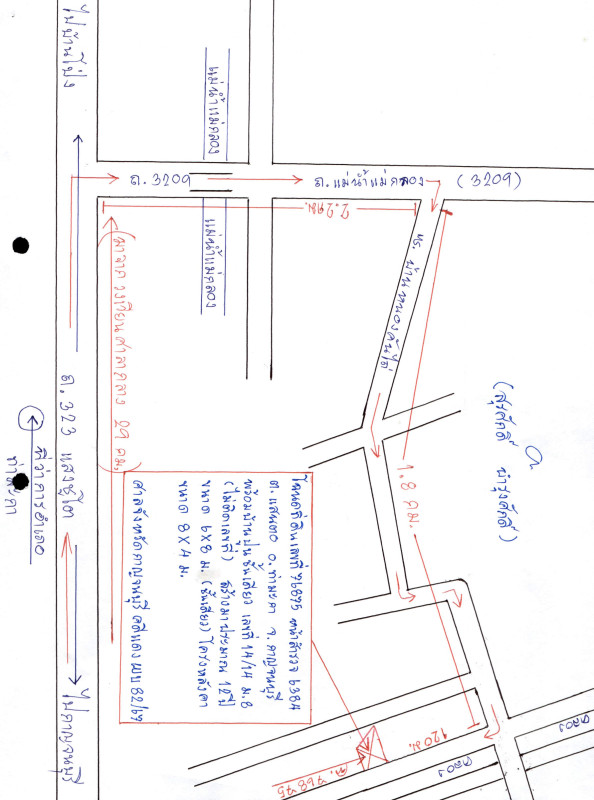 ไปบ้านโป่ง
แม่น้ำแม่กลอง
แม่น้ำแม่กลอง
ถ. 3209
ถ. แม่น้ำแม่กลอง
(3209)
2.2 กม.
ทร. บ้านหนองตันไต่
(มาจากวงเวียนศาลากลาง 29 กม.)
ถ. 323 แสงชูโต
ที่ว่าการอำเภอ
ท่ามะกา
ไปกาญจนบุรี
1.8 กม.
(สุรศักดิ์ บำรุงศักดิ์)
โฉนดที่ดินเลขที่ 76875 หน้าสำรวจ 6384
ต. แสนตอ อ. ท่ามะกา จ. กาญจนบุรี
พร้อมบ้านปูนชั้นเดียว เลขที่ 14/14 ม. 8
(ไม่ติดเลขที่) สร้างมาประมาณ 12 ปี
ขนาด 6 x 8 ม. (ชั้นเดียว) โครงหลังคา
ขนาด 8 x 4 ม.
ศาลจังหวัดกาญจนบุรี คดีแดง ผบ 82/67
120 ม.
ฉ. 76875
คลอง
คลอง